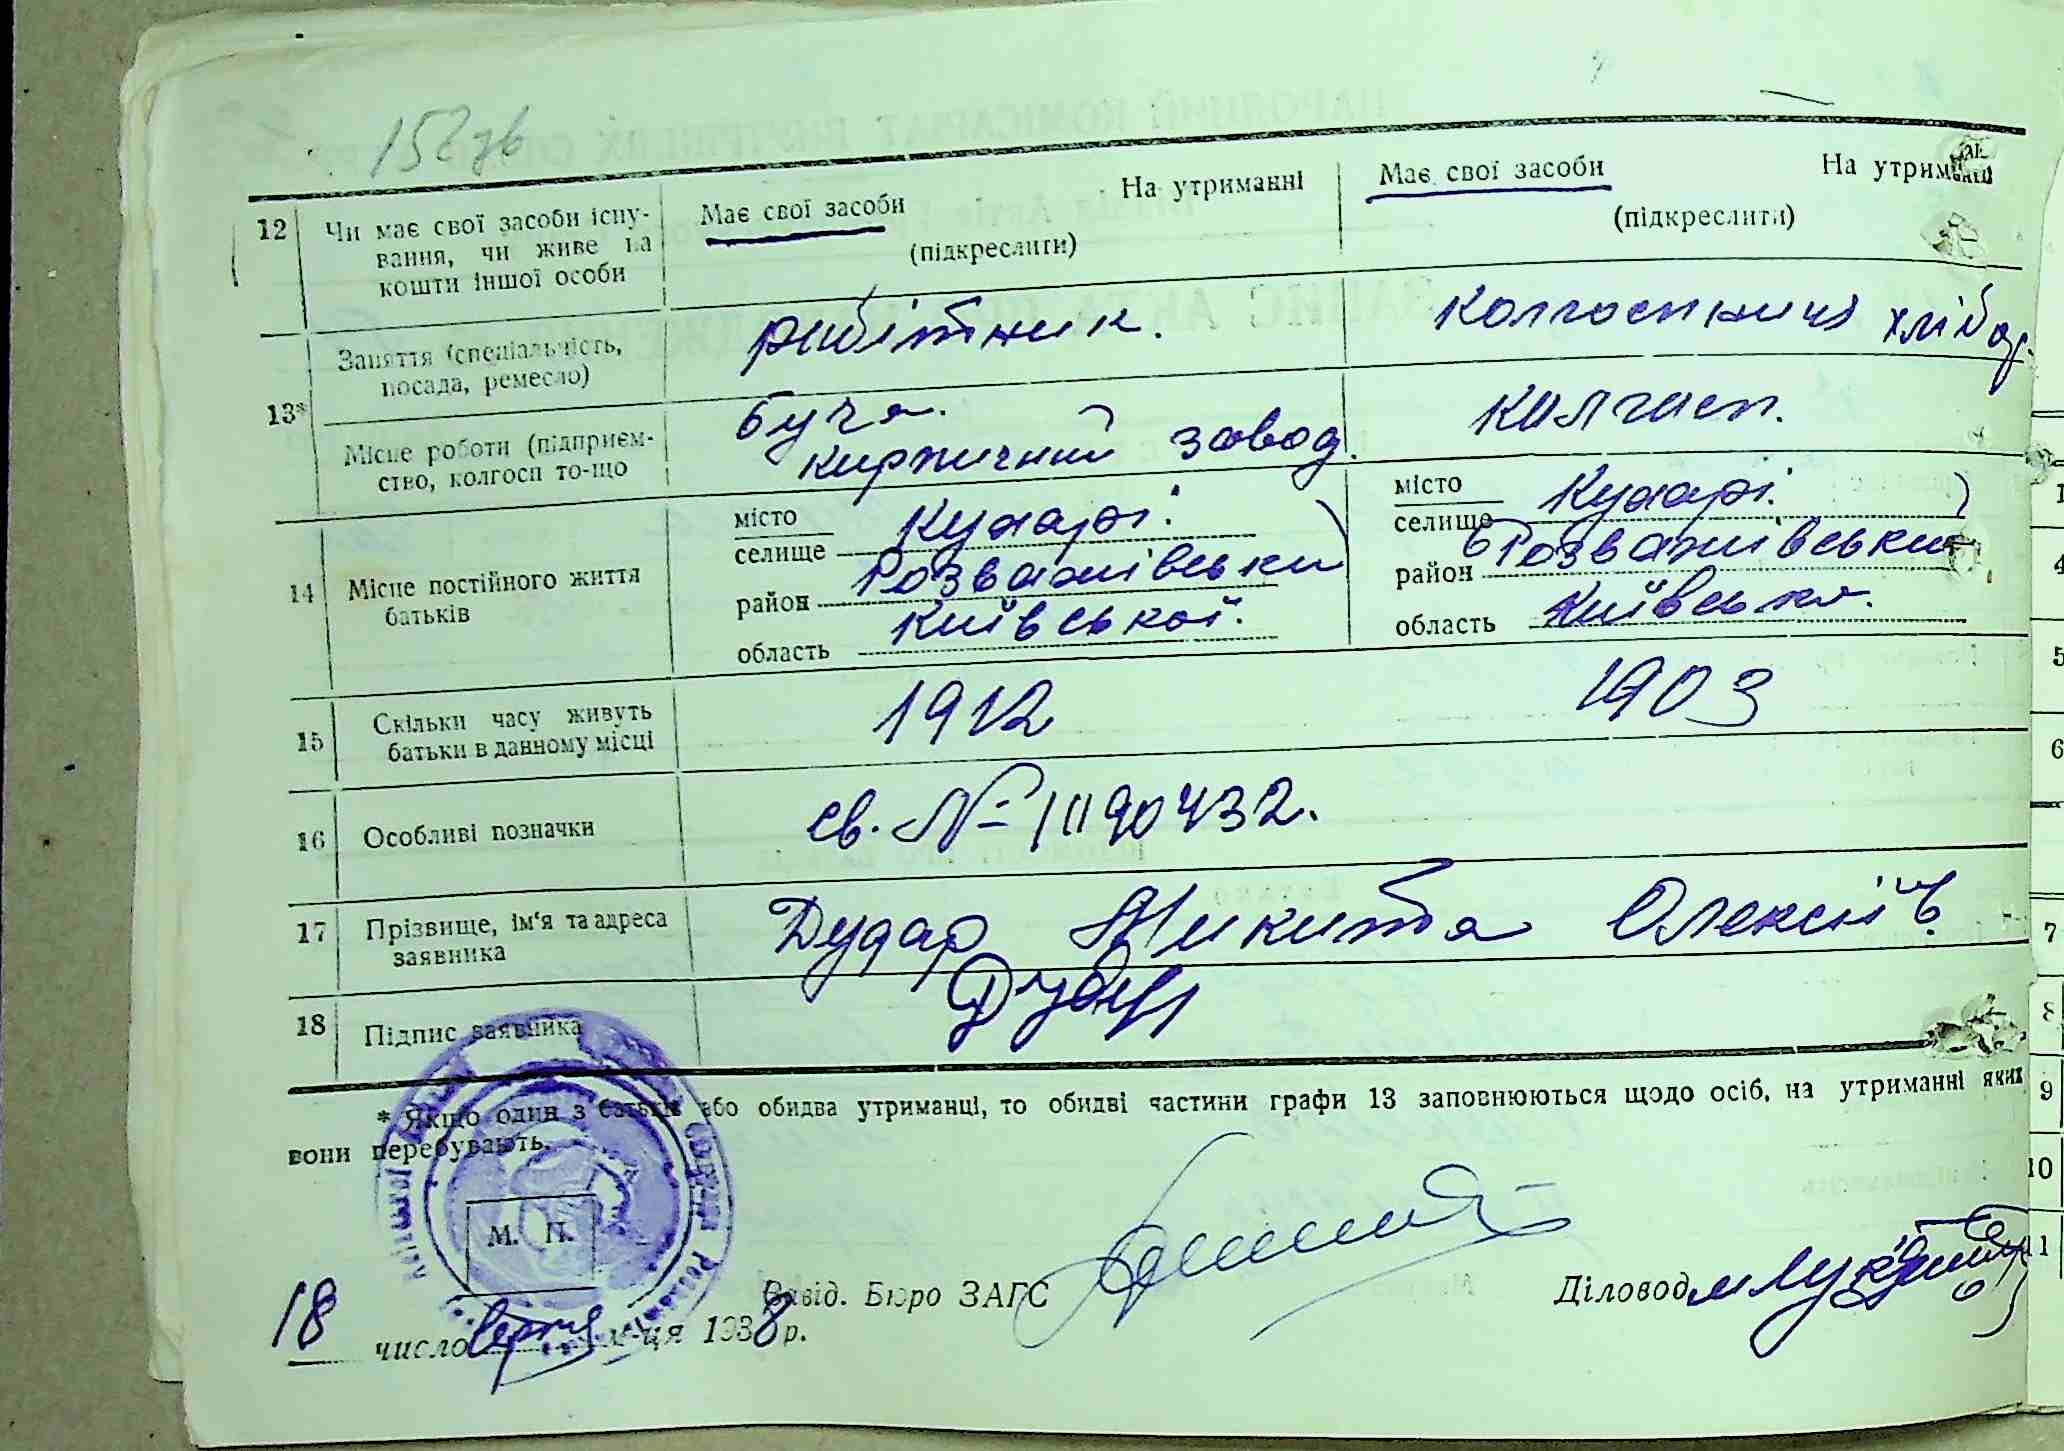 152 зв
12
Чи має свої засоби існу-
вання, чи живе на
кошти іншої особи
Має свої засоби На утриманні
(підкреслити)
Має свої засоби На утриманні
(підкреслити)
13*
Заняття (спеціальність,
посада, ремесло)
рабітник.
колгоспниця хлібор.
Місце роботи (підприєм-
ство, колгосп то-що
Буча.
кирпичний завод.
калгасп.
14
Місце постійного життя
батьків
місто
селище Кухарі.
район Розважівськи
область Київської.
місто
селище Кухарі.
район Розважівськи
область Київська.
15
Скільки часу живуть
батьки в данному місці
1912
1903
16
Особливі позначки
св. №
17
Прізвище, ім'я та адреса
заявника
Дудар Микита Олексіїв
18
Підпис заявника
Дудар
* Якщо один з батьків або обидва утриманці, то обидві частини графи 13 заповнюються щодо осіб, на утриманні яких
вони перебувають.
М. П.
Завід. Бюро ЗАГС
Діловод
18 число серпня м-ця 1938 р.
1
4
5
6
7
8
9
10
11